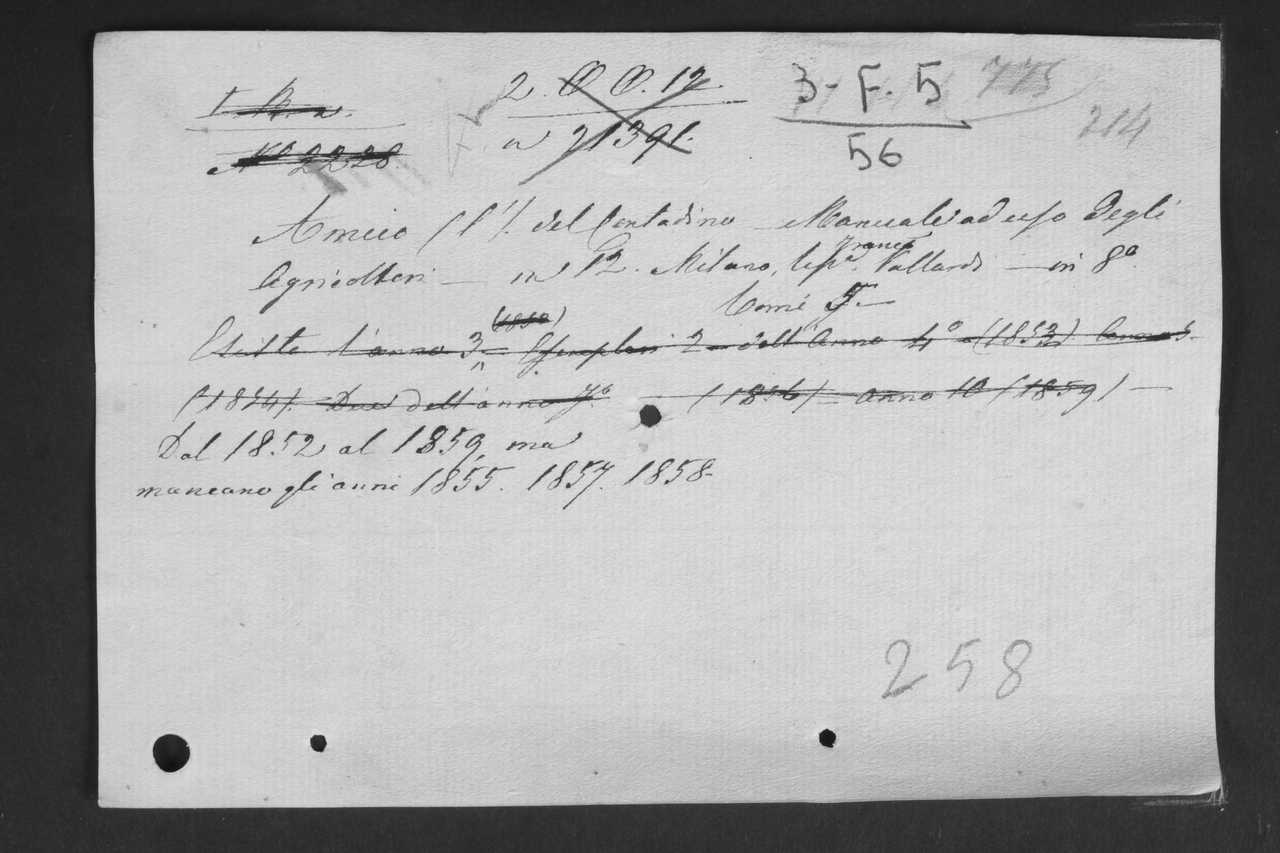 2. O O. 12
3-F. 5
773
214
Nº 2228
n 21391.
56
Amico (l') del Contadino Manuale ad uso degli
Agricoltori — in 12. Milano, tipª. Franco Vallardi — in 8º.
Tomi 5. —
(1850)
Esiste l'anno 3º Esemplari 2 dell'anno 4º (1853) anno 5.
(1854). Due dell'anno 7º (1856) — anno 10 (1859) —
Dal 1852 al 1859, ma
mancano gli anni 1855. 1857. 1858-
258